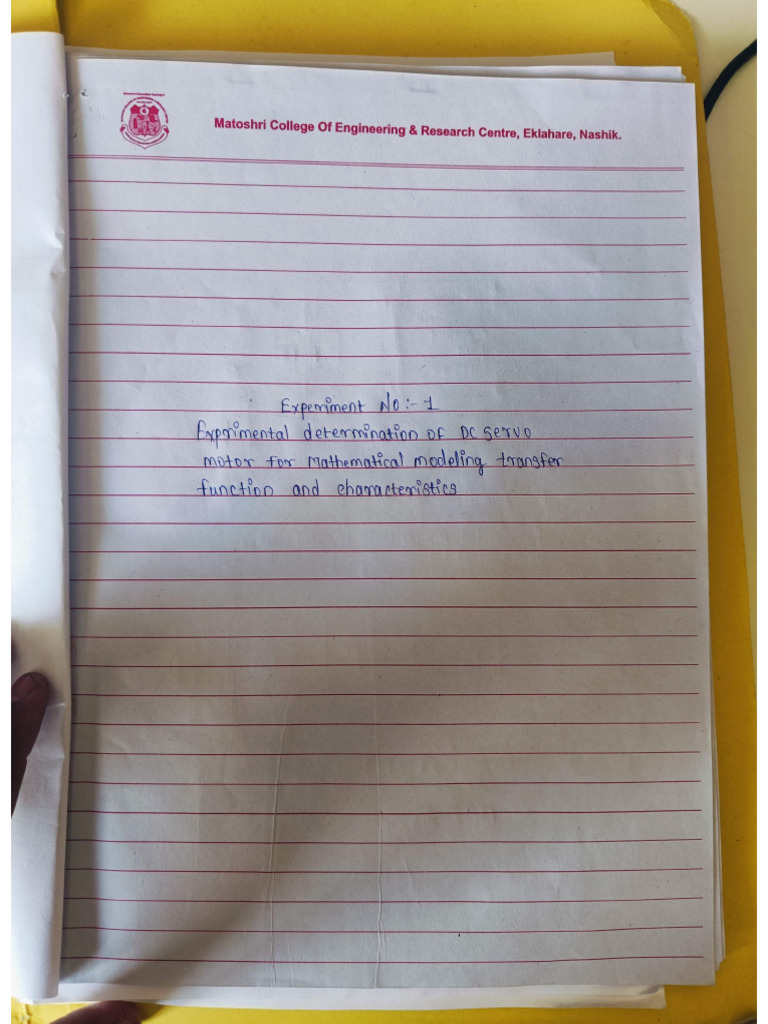 Matoshri College Of Engineering & Research Centre, Eklahare, Nashik.
Experiment No:- 1
Exprimental determination of DC servo
motor for Mathematical modeling transfer
function and characteristics